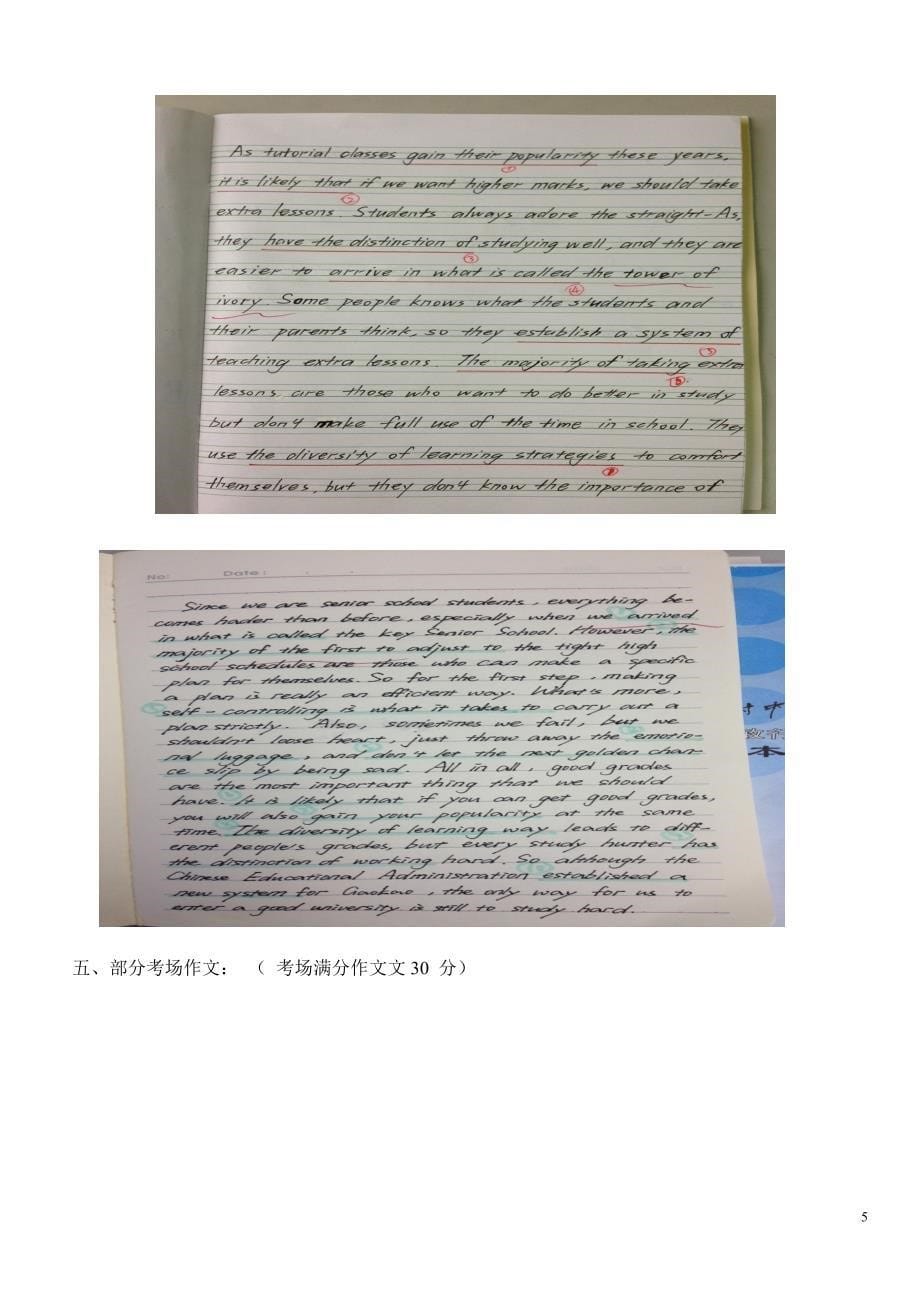 As tutorial classes gain their popularity these years,
①
it is likely that if we want higher marks, we should take
②
extra lessons. Students always adore the straight-As,
they have the distinction of studying well, and they are
③
easier to arrive in what is called the tower of
④
ivory. Some people knows what the students and
their parents think, so they establish a system of
⑤
teaching extra lessons. The majority of taking extra
lessons are those who want to do better in study
but don't make full use of the time in school. They
use the diversity of learning strategies to comfort
themselves, but they don't know the importance of
No: Date:
Since we are senior school students, everything be-
comes hader than before, especially when we arrived
in what is called the key Senior School. However, the
majority of the first to adjust to the tight high
school schedules are those who can make a specific
plan for themselves. So for the first step, making
a plan is really an efficient way. What's more,
self-controlling is what it takes to carry out a
plan strictly. Also, sometimes we fail, but we
shouldn't loose heart, just throw away the emotio-
nal luggage, and don't let the next golden chan-
ce slip by being sad. All in all, good grades
are the most important thing that we should
have. It is likely that if you can get good grades,
you will also gain your popularity at the same
time. The diversity of learning way leads to diff-
erent people's grades, but every study hunter has
the distinction of working hard. So although the
Chinese Educational Administration established a
new system for Gaokao, the only way for us to
enter a good university is still to study hard.
本
五、部分考场作文： （ 考场满分作文文 30 分）
5